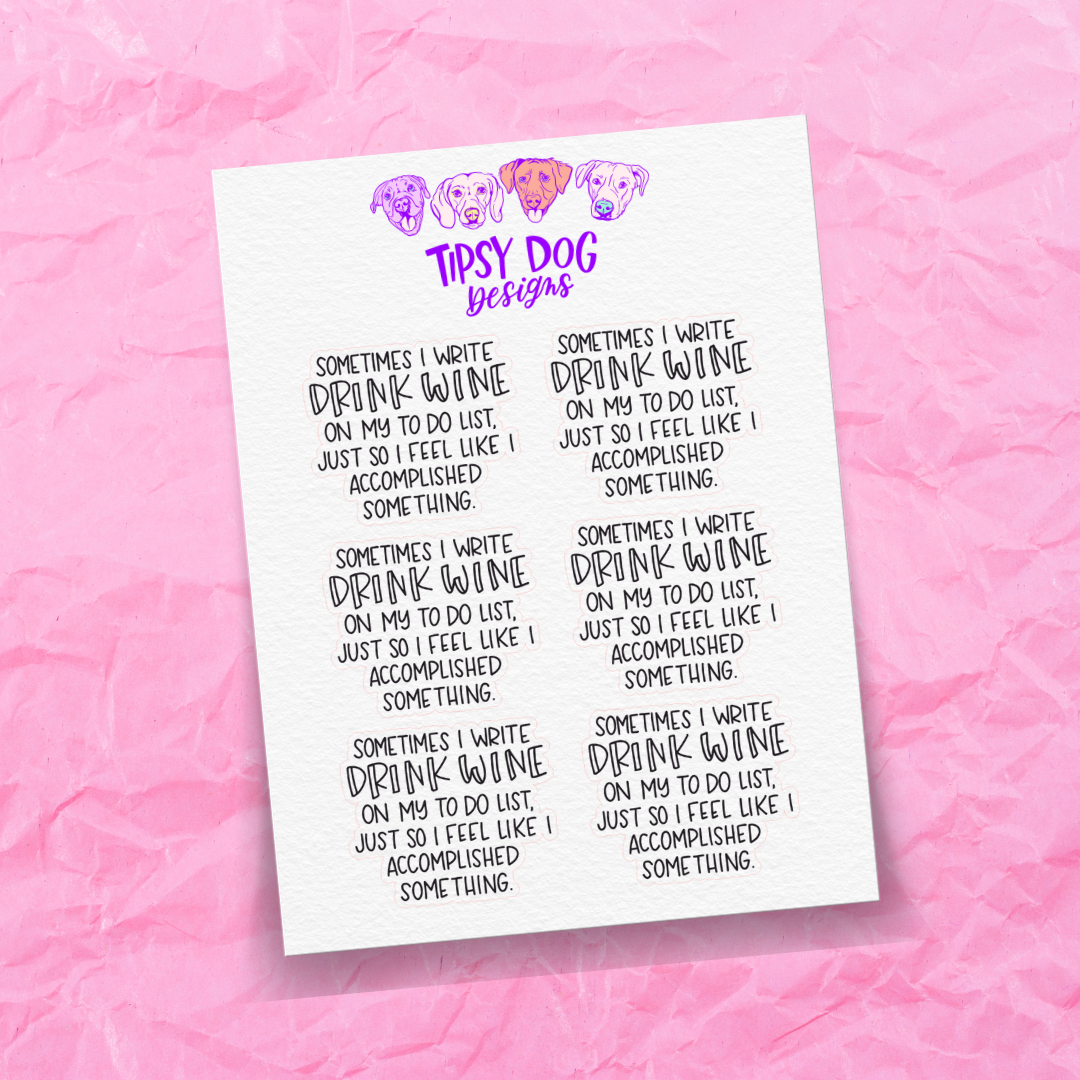 TIPSY DOG
Designs
SOMETIMES I WRITE
DRINK WINE
ON MY TO DO LIST,
JUST SO I FEEL LIKE I
ACCOMPLISHED
SOMETHING.
SOMETIMES I WRITE
DRINK WINE
ON MY TO DO LIST,
JUST SO I FEEL LIKE I
ACCOMPLISHED
SOMETHING.
SOMETIMES I WRITE
DRINK WINE
ON MY TO DO LIST,
JUST SO I FEEL LIKE I
ACCOMPLISHED
SOMETHING.
SOMETIMES I WRITE
DRINK WINE
ON MY TO DO LIST,
JUST SO I FEEL LIKE I
ACCOMPLISHED
SOMETHING.
SOMETIMES I WRITE
DRINK WINE
ON MY TO DO LIST,
JUST SO I FEEL LIKE I
ACCOMPLISHED
SOMETHING.
SOMETIMES I WRITE
DRINK WINE
ON MY TO DO LIST,
JUST SO I FEEL LIKE I
ACCOMPLISHED
SOMETHING.